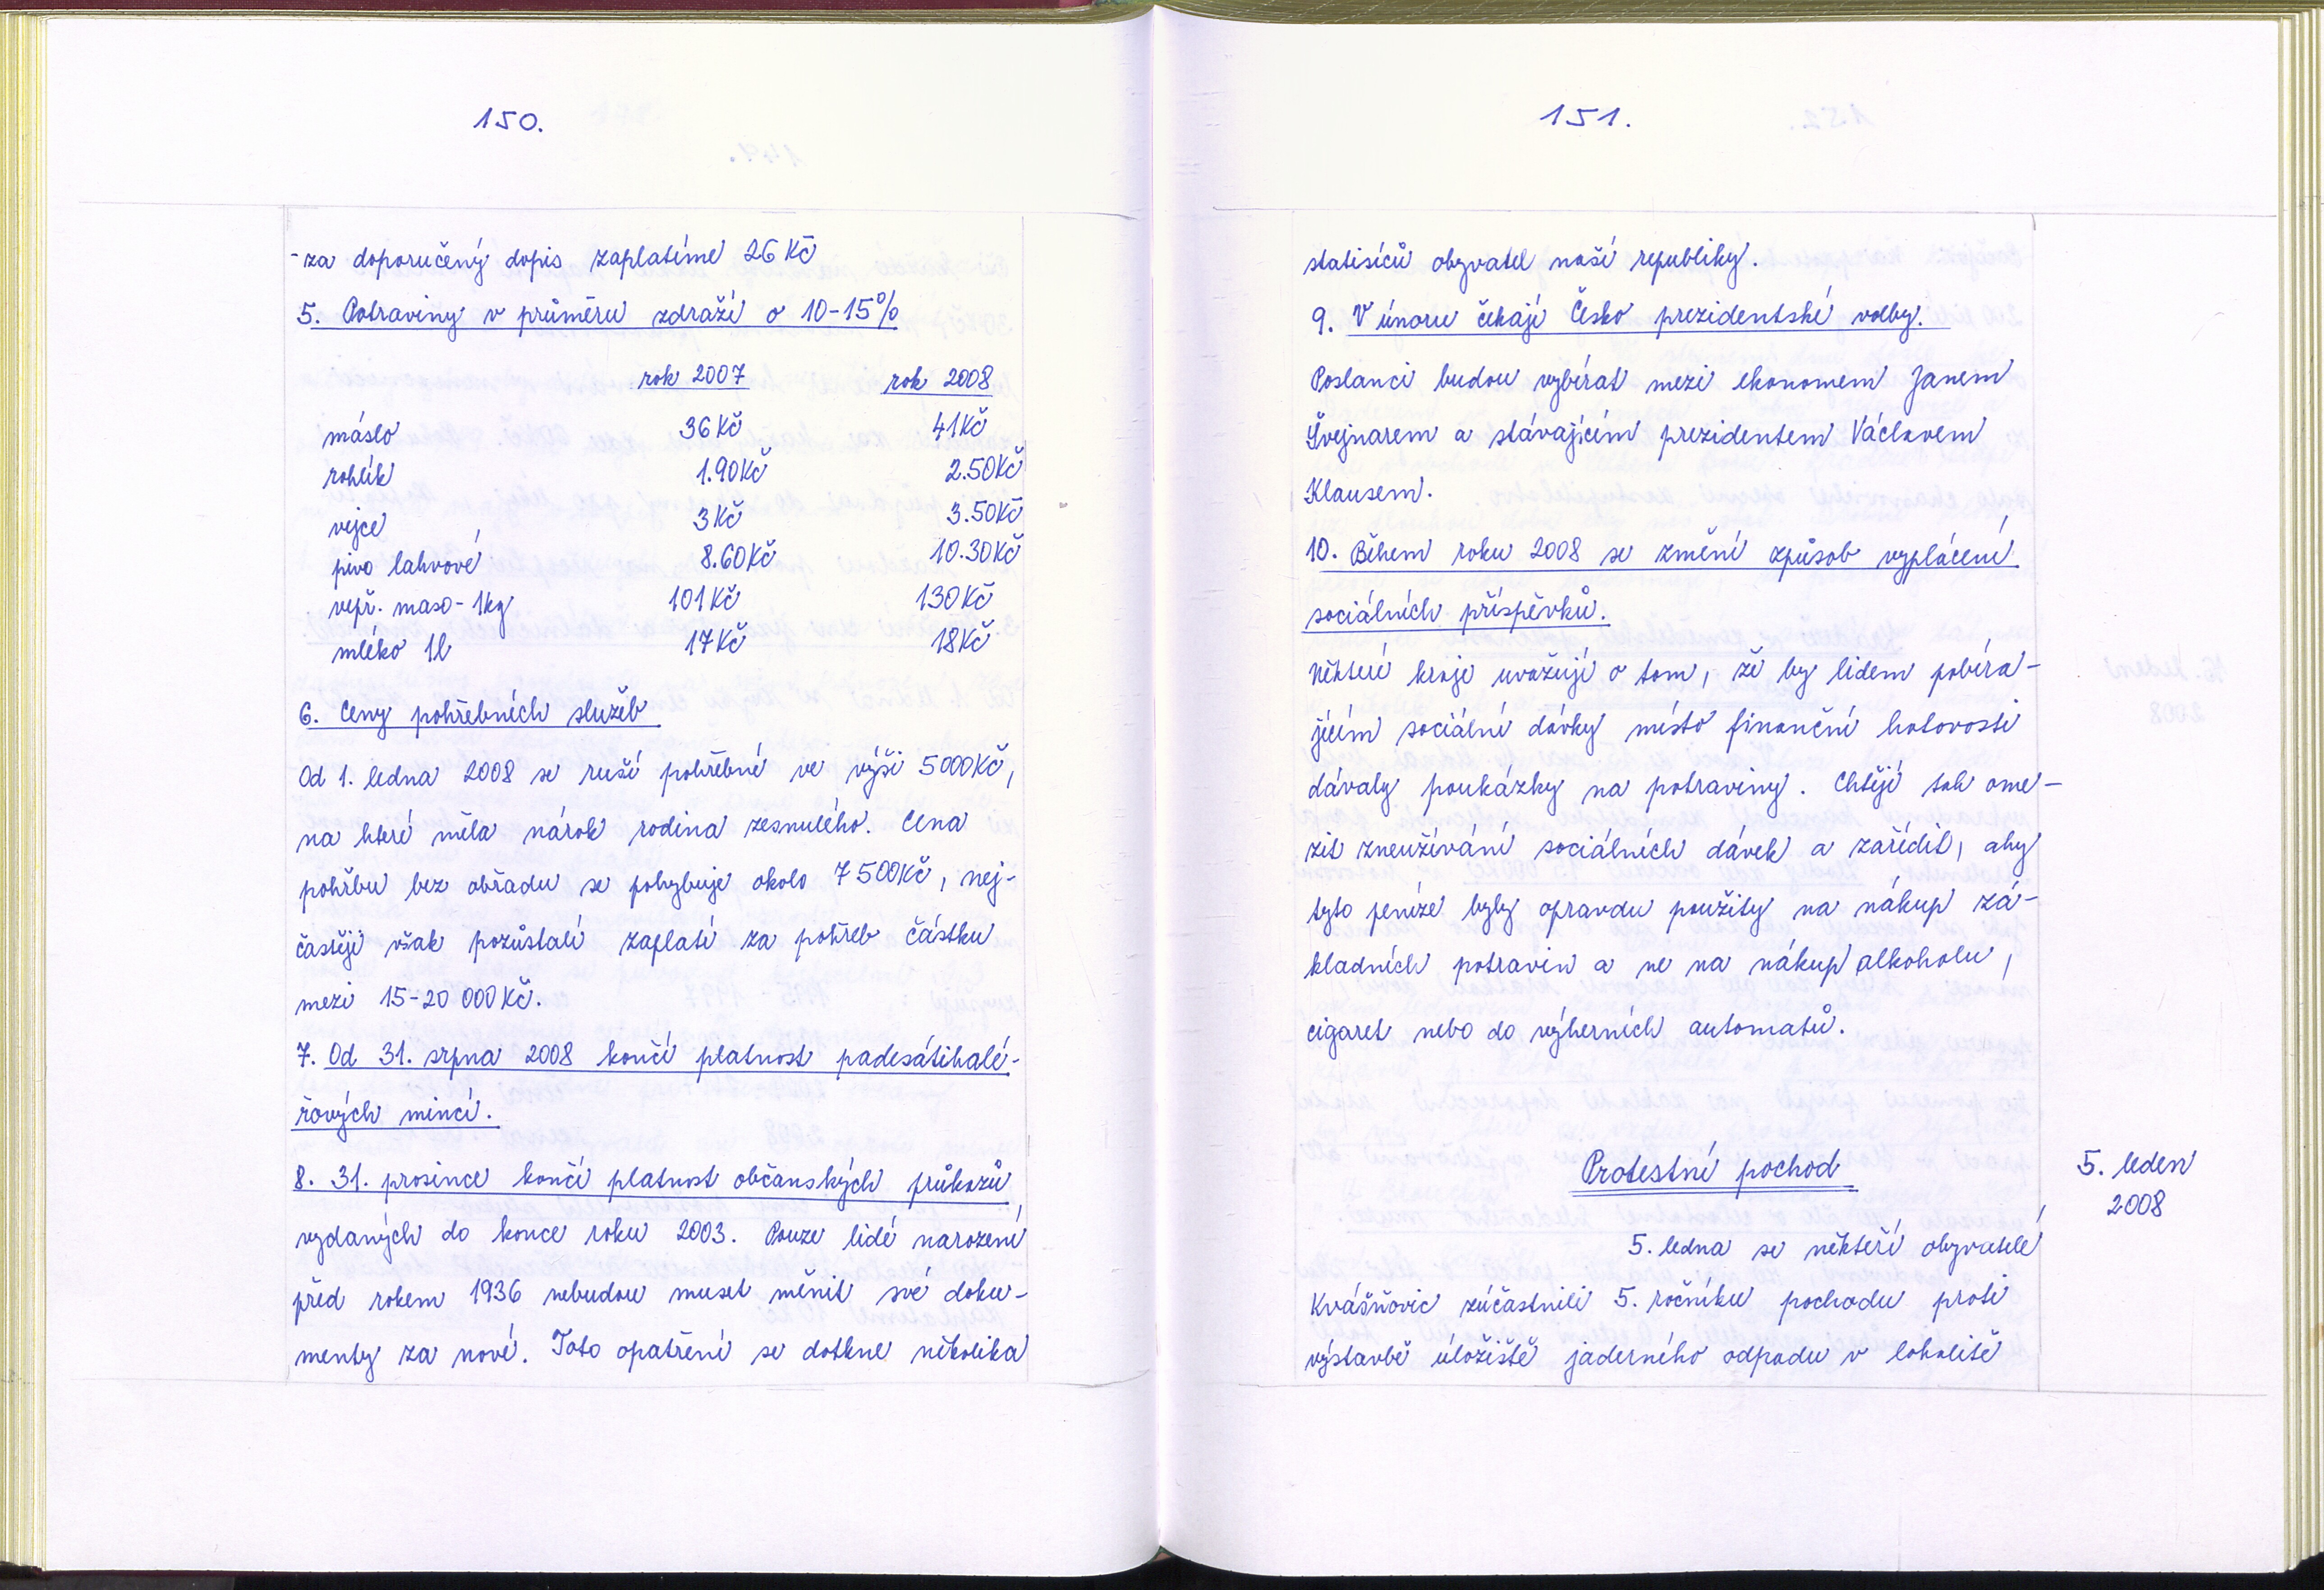 150.
- za doporučený dopis zaplatíme 26 Kč
5. Potraviny v průměru zdraží o 10-15%
rok 2007 rok 2008
máslo 36 Kč 41 Kč
rohlík 1.90 Kč 2.50 Kč
vejce 3 Kč 3.50 Kč
pivo lahvové 8.60 Kč 10.30 Kč
vepř. maso - 1kg 101 Kč 130 Kč
mléko 1l 17 Kč 18 Kč
6. Ceny pohřebních služeb
Od 1. ledna 2008 se ruší pohřebné ve výši 5000 Kč,
na které měla nárok rodina zesnulého. Cena
pohřbu bez obřadu se pohybuje okolo 7 500 Kč, nej-
častěji však pozůstalí zaplatí za pohřeb částku
mezi 15-20 000 Kč.
7. Od 31. srpna 2008 končí platnost padesátihalé-
řových mincí.
8. 31. prosince končí platnost občanských průkazů,
vydaných do konce roku 2003. Pouze lidé narození
před rokem 1936 nebudou muset měnit své doku-
menty za nové. Toto opatření se dotkne několika
151.
statisíců obyvatel naší republiky.
9. V únoru čekají Česko prezidentské volby.
Poslanci budou vybírat mezi ekonomem Janem
Švejnarem a stávajícím prezidentem Václavem
Klausem.
10. Během roku 2008 se změní způsob vyplácení
sociálních příspěvků.
Některé kraje uvažují o tom, že by lidem pobíra-
jícím sociální dávky místo finanční hotovosti
dávaly poukázky na potraviny. Chtějí tak ome-
zit zneužívání sociálních dávek a zařídit, aby
tyto peníze byly opravdu použity na nákup zá-
kladních potravin a ne na nákup alkoholu,
cigaret nebo do výherních automatů.
Protestní pochod
5. leden
2008
5. ledna se někteří obyvatelé
Kvášňovic zúčastnili 5. ročníku pochodu proti
výstavbě úložiště jaderného odpadu v lokalitě